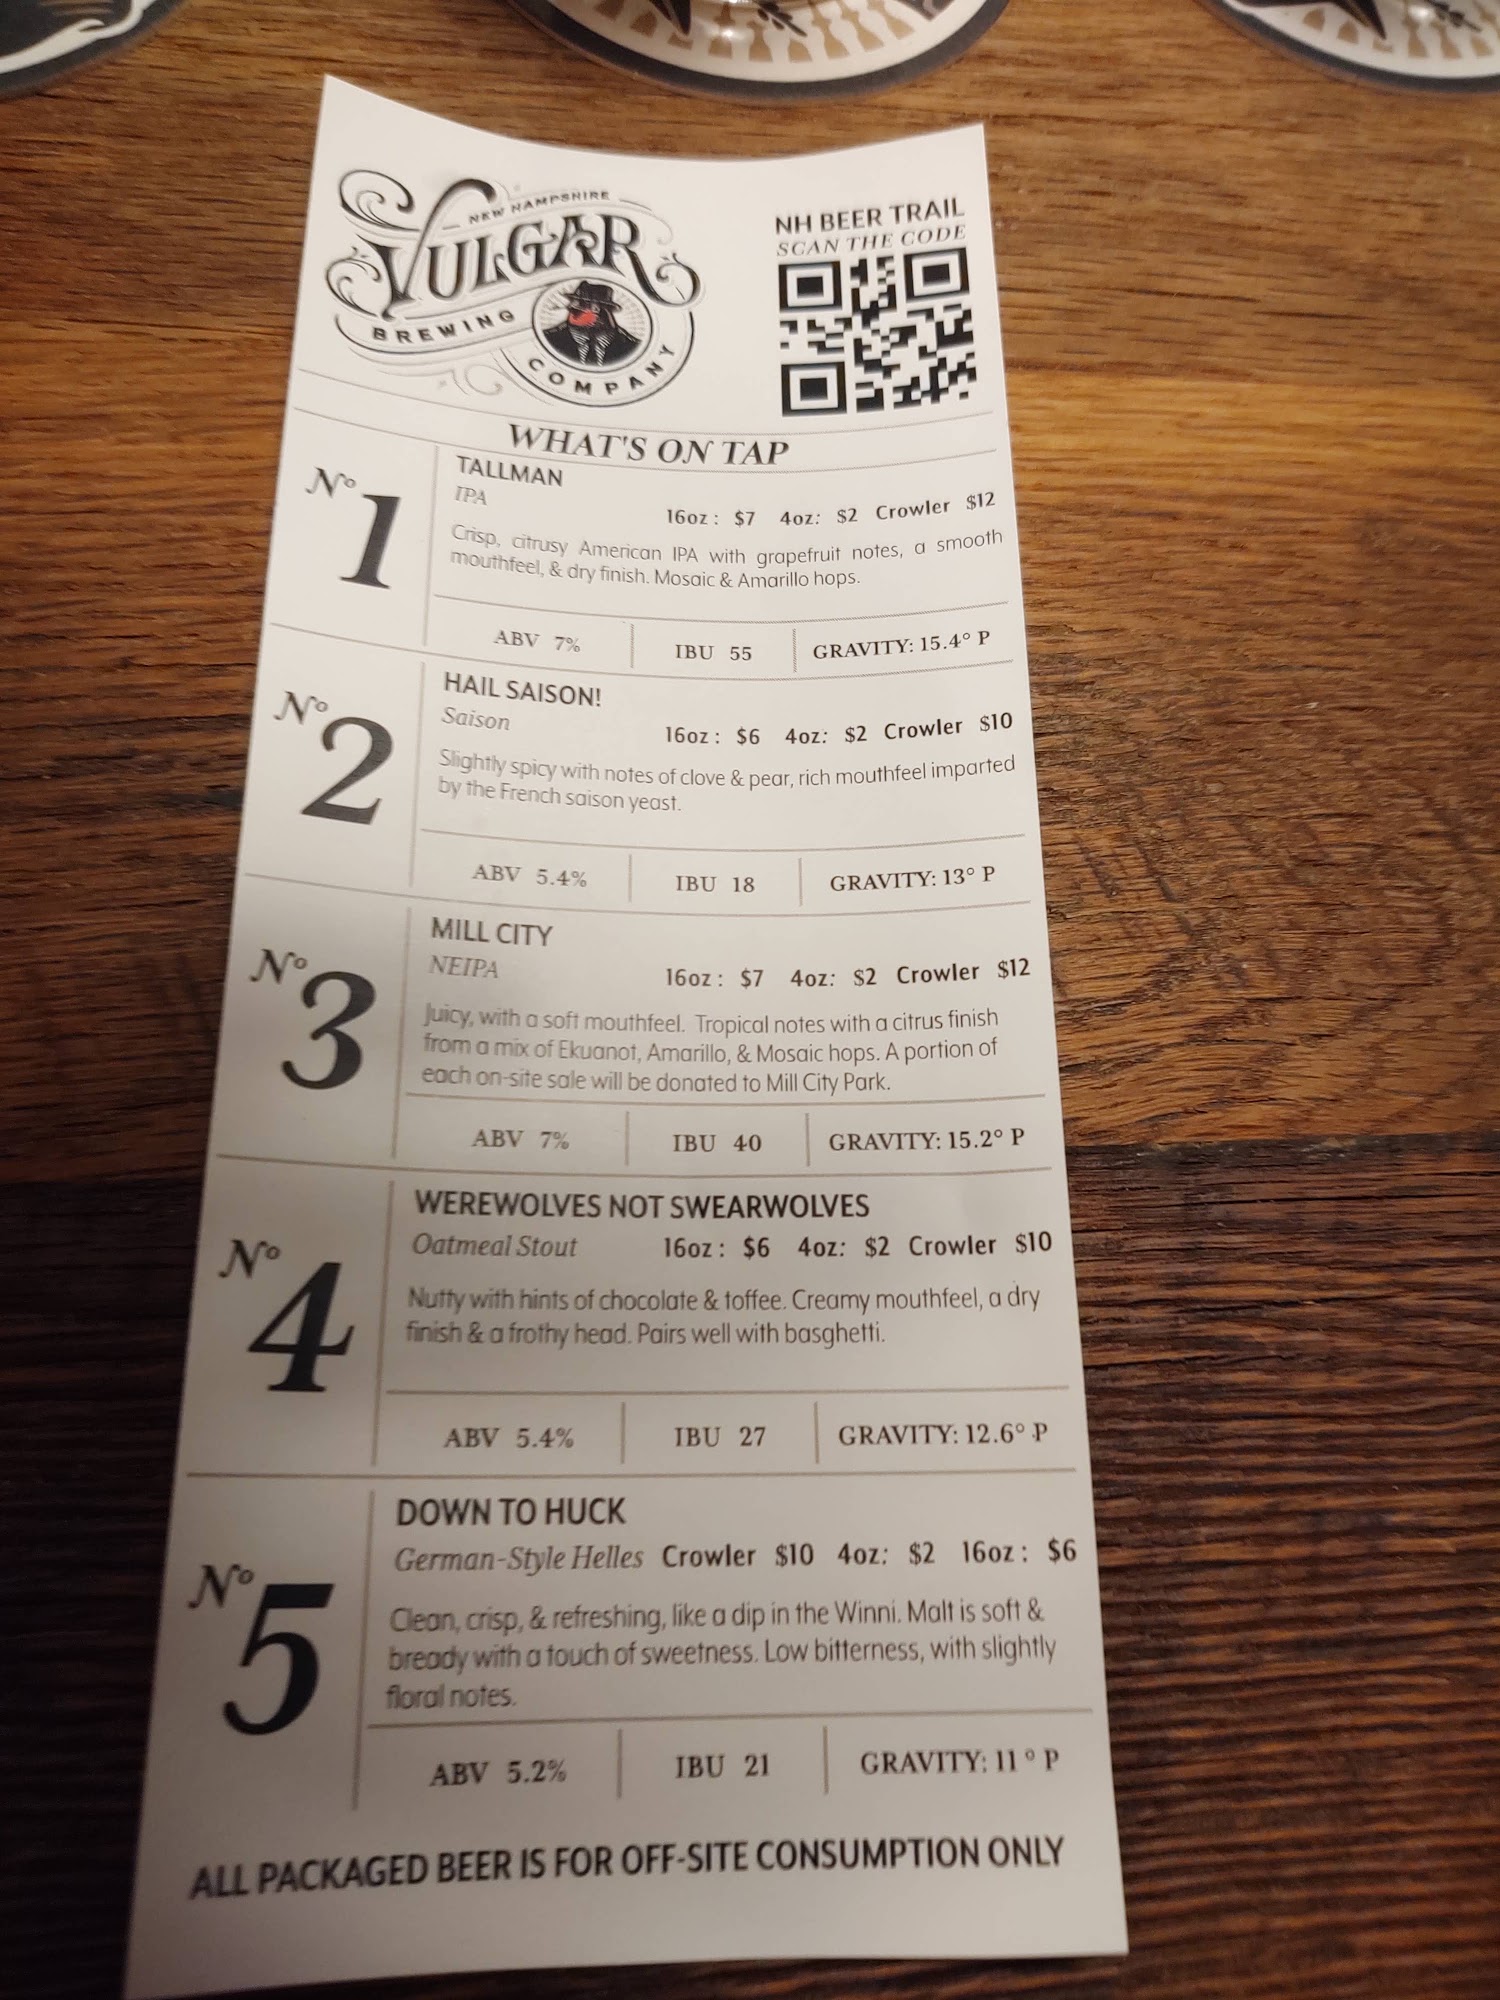 NEW HAMPSHIRE
VULGAR
BREWING
COMPANY
NH BEER TRAIL
SCAN THE CODE
WHAT'S ON TAP
Nº 1
TALLMAN
IPA
16oz : $7 4oz: $2 Crowler $12
Crisp, citrusy American IPA with grapefruit notes, a smooth
mouthfeel, & dry finish. Mosaic & Amarillo hops.
ABV 7% IBU 55 GRAVITY: 15.4° P
Nº 2
HAIL SAISON!
Saison
16oz : $6 4oz: $2 Crowler $10
Slightly spicy with notes of clove & pear, rich mouthfeel imparted
by the French saison yeast.
ABV 5.4% IBU 18 GRAVITY: 13° P
Nº 3
MILL CITY
NEIPA
16oz : $7 4oz: $2 Crowler $12
Juicy, with a soft mouthfeel. Tropical notes with a citrus finish
from a mix of Ekuanot, Amarillo, & Mosaic hops. A portion of
each on-site sale will be donated to Mill City Park.
ABV 7% IBU 40 GRAVITY: 15.2° P
Nº 4
WEREWOLVES NOT SWEARWOLVES
Oatmeal Stout 16oz : $6 4oz: $2 Crowler $10
Nutty with hints of chocolate & toffee. Creamy mouthfeel, a dry
finish & a frothy head. Pairs well with basghetti.
ABV 5.4% IBU 27 GRAVITY: 12.6° P
Nº 5
DOWN TO HUCK
German-Style Helles Crowler $10 4oz: $2 16oz : $6
Clean, crisp, & refreshing, like a dip in the Winni. Malt is soft &
bready with a touch of sweetness. Low bitterness, with slightly
floral notes.
ABV 5.2% IBU 21 GRAVITY: 11 ° P
ALL PACKAGED BEER IS FOR OFF-SITE CONSUMPTION ONLY